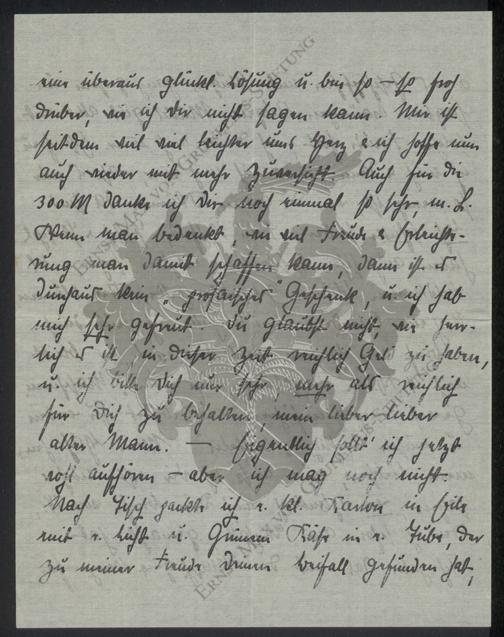 eine überaus glückl. Lösung u. bin so — so froh
drüber, wie ich dir nicht sagen kann. Mir ist
seitdem viel viel leichter ums Herz u. ich hoffe nun
auch wieder mit mehr Zuversicht. Auch für die
300 M danke ich Dir noch einmal so sehr, m. L.
Wenn man bedenkt, wie viel Freude u. Erleichte-
rung man damit schaffen kann, dann ist es
durchaus kein „prosaisches" Geschenk, u. ich hab
mich sehr gefreut. Du glaubst nicht wie herr-
lich es ist, in dieser Zeit reichlich Geld zu haben,
u. ich bitte Dich nur sehr mehr als reichlich
für Dich zu behalten, mein lieber lieber
alter Mann. — Eigentlich sollt' ich jetzt
wohl aufhören — aber ich mag noch nicht.
Nach Tisch packte ich e. kl. Karton in Eile
mit e. Licht u. Käse in e. Tube, der
zu meiner Freude Deinen Beifall gefunden hat,